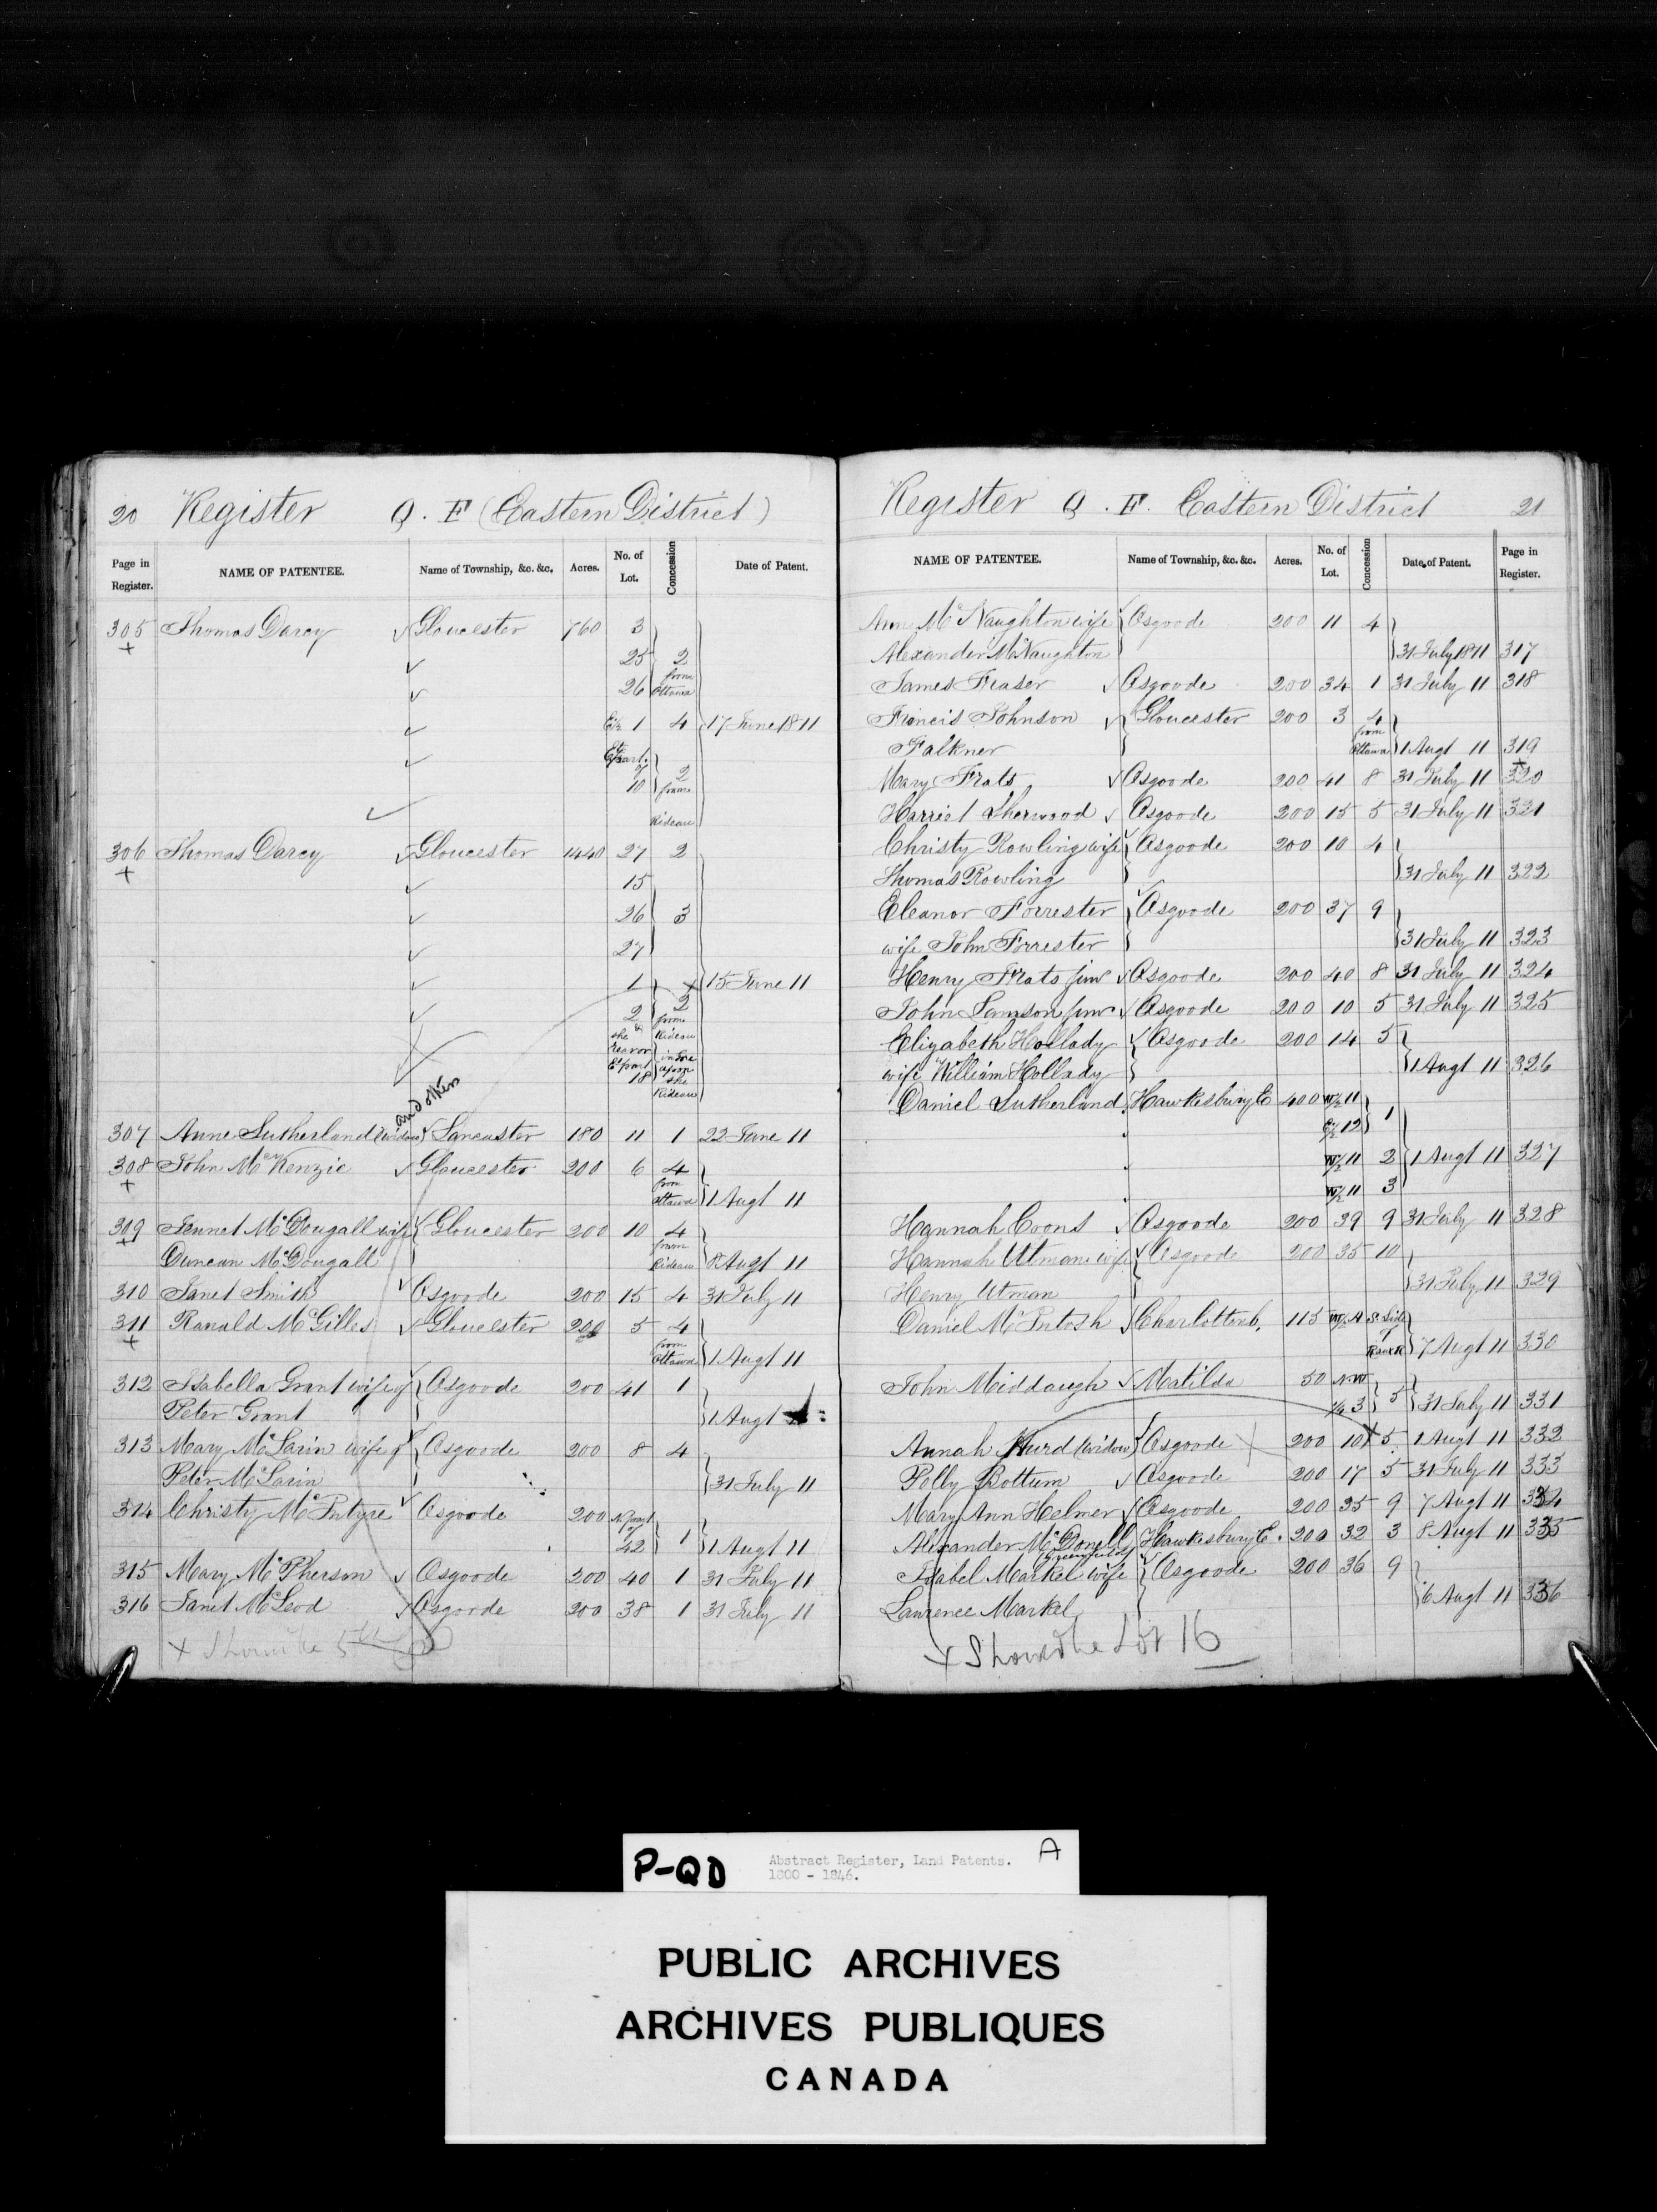 20 Register Q. F (Eastern District)
Page in Register. NAME OF PATENTEE. Name of Township, &c. &c. Acres. No. of Lot. Concession Date of Patent.
305 Thomas Darcy Gloucester 760 3
+
25 2
26 from Ottawa
E½ 1 4 17 June 1811
Et part of
10 2 from
Rideau
306 Thomas Darcy Gloucester 1440 27 2
+
15
26 3
27
1 + 15 June 11
2 2
& from
the Rideau
rear or
Et part in the
18 from the
Rideau
and others
307 Anne Sutherland (widow) Lancaster 180 11 1 22 June 11
308 John McKenzie Gloucester 200 6 4
+ from Ottawa 1 Augt 11
309 Jennet McDougall wife Gloucester 200 10 4
+ Duncan McDougall from Rideau 8 Augt 11
310 Janet Smith Osgoode 200 15 4 31 July 11
311 Ranald McGilles Gloucester 200 5 4
+ from Ottawa 1 Augt 11
312 Isabella Grant wife of Osgoode 200 41 1
Peter Grant 1 Augt
313 Mary McLarin wife of Osgoode 200 8 4
Peter McLarin 31 July 11
314 Christy McIntyre Osgoode 200 N part of
42 1 1 Augt 11
315 Mary McPherson Osgoode 200 40 1 31 July 11
316 Janet McLeod Osgoode 200 38 1 31 July 11
+ Should be 5th
Register Q. F. Eastern District 21
NAME OF PATENTEE. Name of Township, &c. &c. Acres. No. of Lot. Concession Date of Patent. Page in Register.
Anne McNaughton wife Osgoode 200 11 4
Alexander McNaughton 31 July 1811 317
James Fraser Osgoode 200 34 1 31 July 11 318
Francis Johnson Gloucester 200 3 4
Falkner from Ottawa 1 Augt 11 319
+
Mary Frats Osgoode 200 41 8 31 July 11 320
Harriet Sherwood Osgoode 200 15 5 31 July 11 321
Christy Rowling wife Osgoode 200 10 4
Thomas Rowling 31 July 11 322
Eleanor Forrester Osgoode 200 37 9
wife John Forrester 31 July 11 323
Henry Frats junr Osgoode 200 40 8 31 July 11 324
John Lamson junr Osgoode 200 10 5 31 July 11 325
Elizabeth Hollady Osgoode 200 14 5
wife William Hollady 1 Augt 11 326
Daniel Sutherland Hawkesbury E 400 W½ 11
E½ 12 1
W½ 11 2 1 Augt 11 327
W½ 11 3
Hannah Coons Osgoode 200 39 9 31 July 11 328
Hannah Utman wife Osgoode 200 35 10
Henry Utman 31 July 11 329
Daniel McIntosh Charlottenb. 115 W½ A S. side
of
7 Augt 11 330
John Middaugh Matilda 50 N W
¼ 3 5 31 July 11 331
Annah Hurd (widow) Osgoode 200 10 + 5 1 Augt 11 332
Polly Bottum Osgoode 200 17 5 31 July 11 333
Mary Ann Helmer Osgoode 200 35 9 7 Augt 11 334
Alexander McDonell Hawkesbury E. 200 32 3 8 Augt 11 335
(Greenfield)
Isabel Markel wife Osgoode 200 36 9
Lawrence Markel 6 Augt 11 336
+ Should be Lot 16
P-QD Abstract Register, Land Patents. A
1800 - 1846.
PUBLIC ARCHIVES
ARCHIVES PUBLIQUES
CANADA